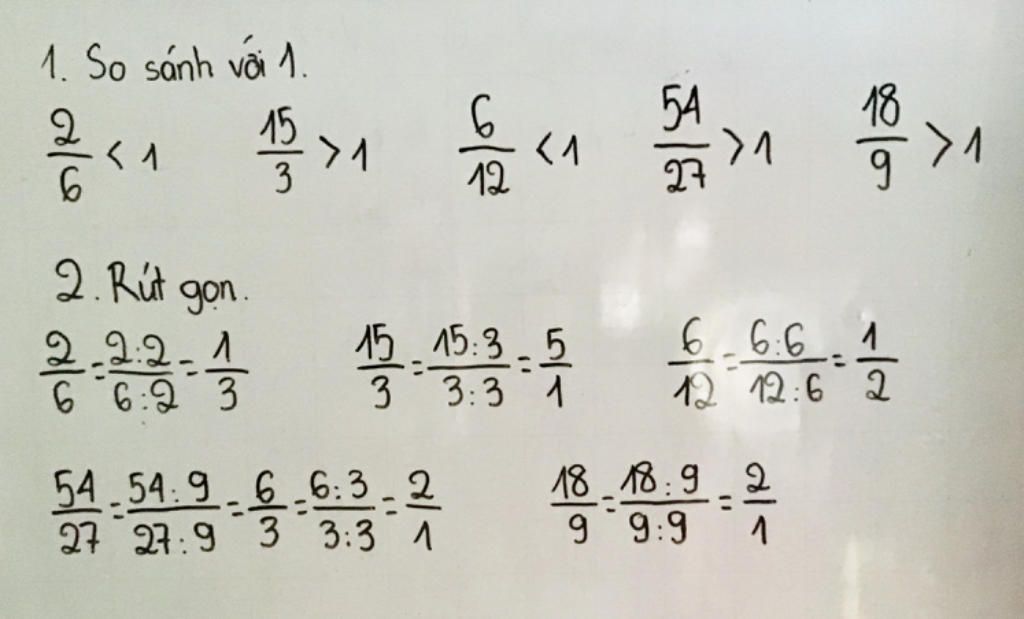 1. So sánh với 1.
2/6 < 1 15/3 > 1 6/12 < 1 54/27 > 1 18/9 > 1
2. Rút gọn.
2/6 = 2:2/6:2 = 1/3 15/3 = 15:3/3:3 = 5/1 6/12 = 6:6/12:6 = 1/2
54/27 = 54:9/27:9 = 6/3 = 6:3/3:3 = 2/1 18/9 = 18:9/9:9 = 2/1